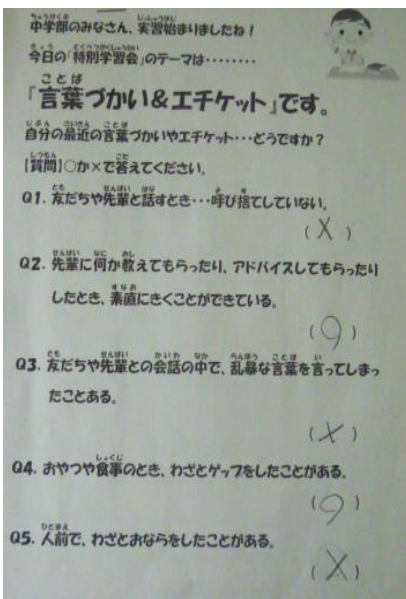 中学部のみなさん、実習始まりましたね！
今日の「特別学習会」のテーマは‥‥‥‥
『言葉づかい＆エチケット』です。
自分の最近の言葉づかいやエチケット‥‥どうですか？
【質問】○か×で答えてください。
Q1. 友だちや先輩と話すとき‥‥呼び捨てしていない。
(X)
Q2. 先輩に何か教えてもらったり、アドバイスしてもらったり
したとき、素直にきくことができている。
(○)
Q3. 友だちや先輩との会話の中で、乱暴な言葉を言ってしまっ
たことある。
(X)
Q4. おやつや食事のとき、わざとゲップをしたことがある。
(○)
Q5. 人前で、わざとおならをしたことがある。
(X)